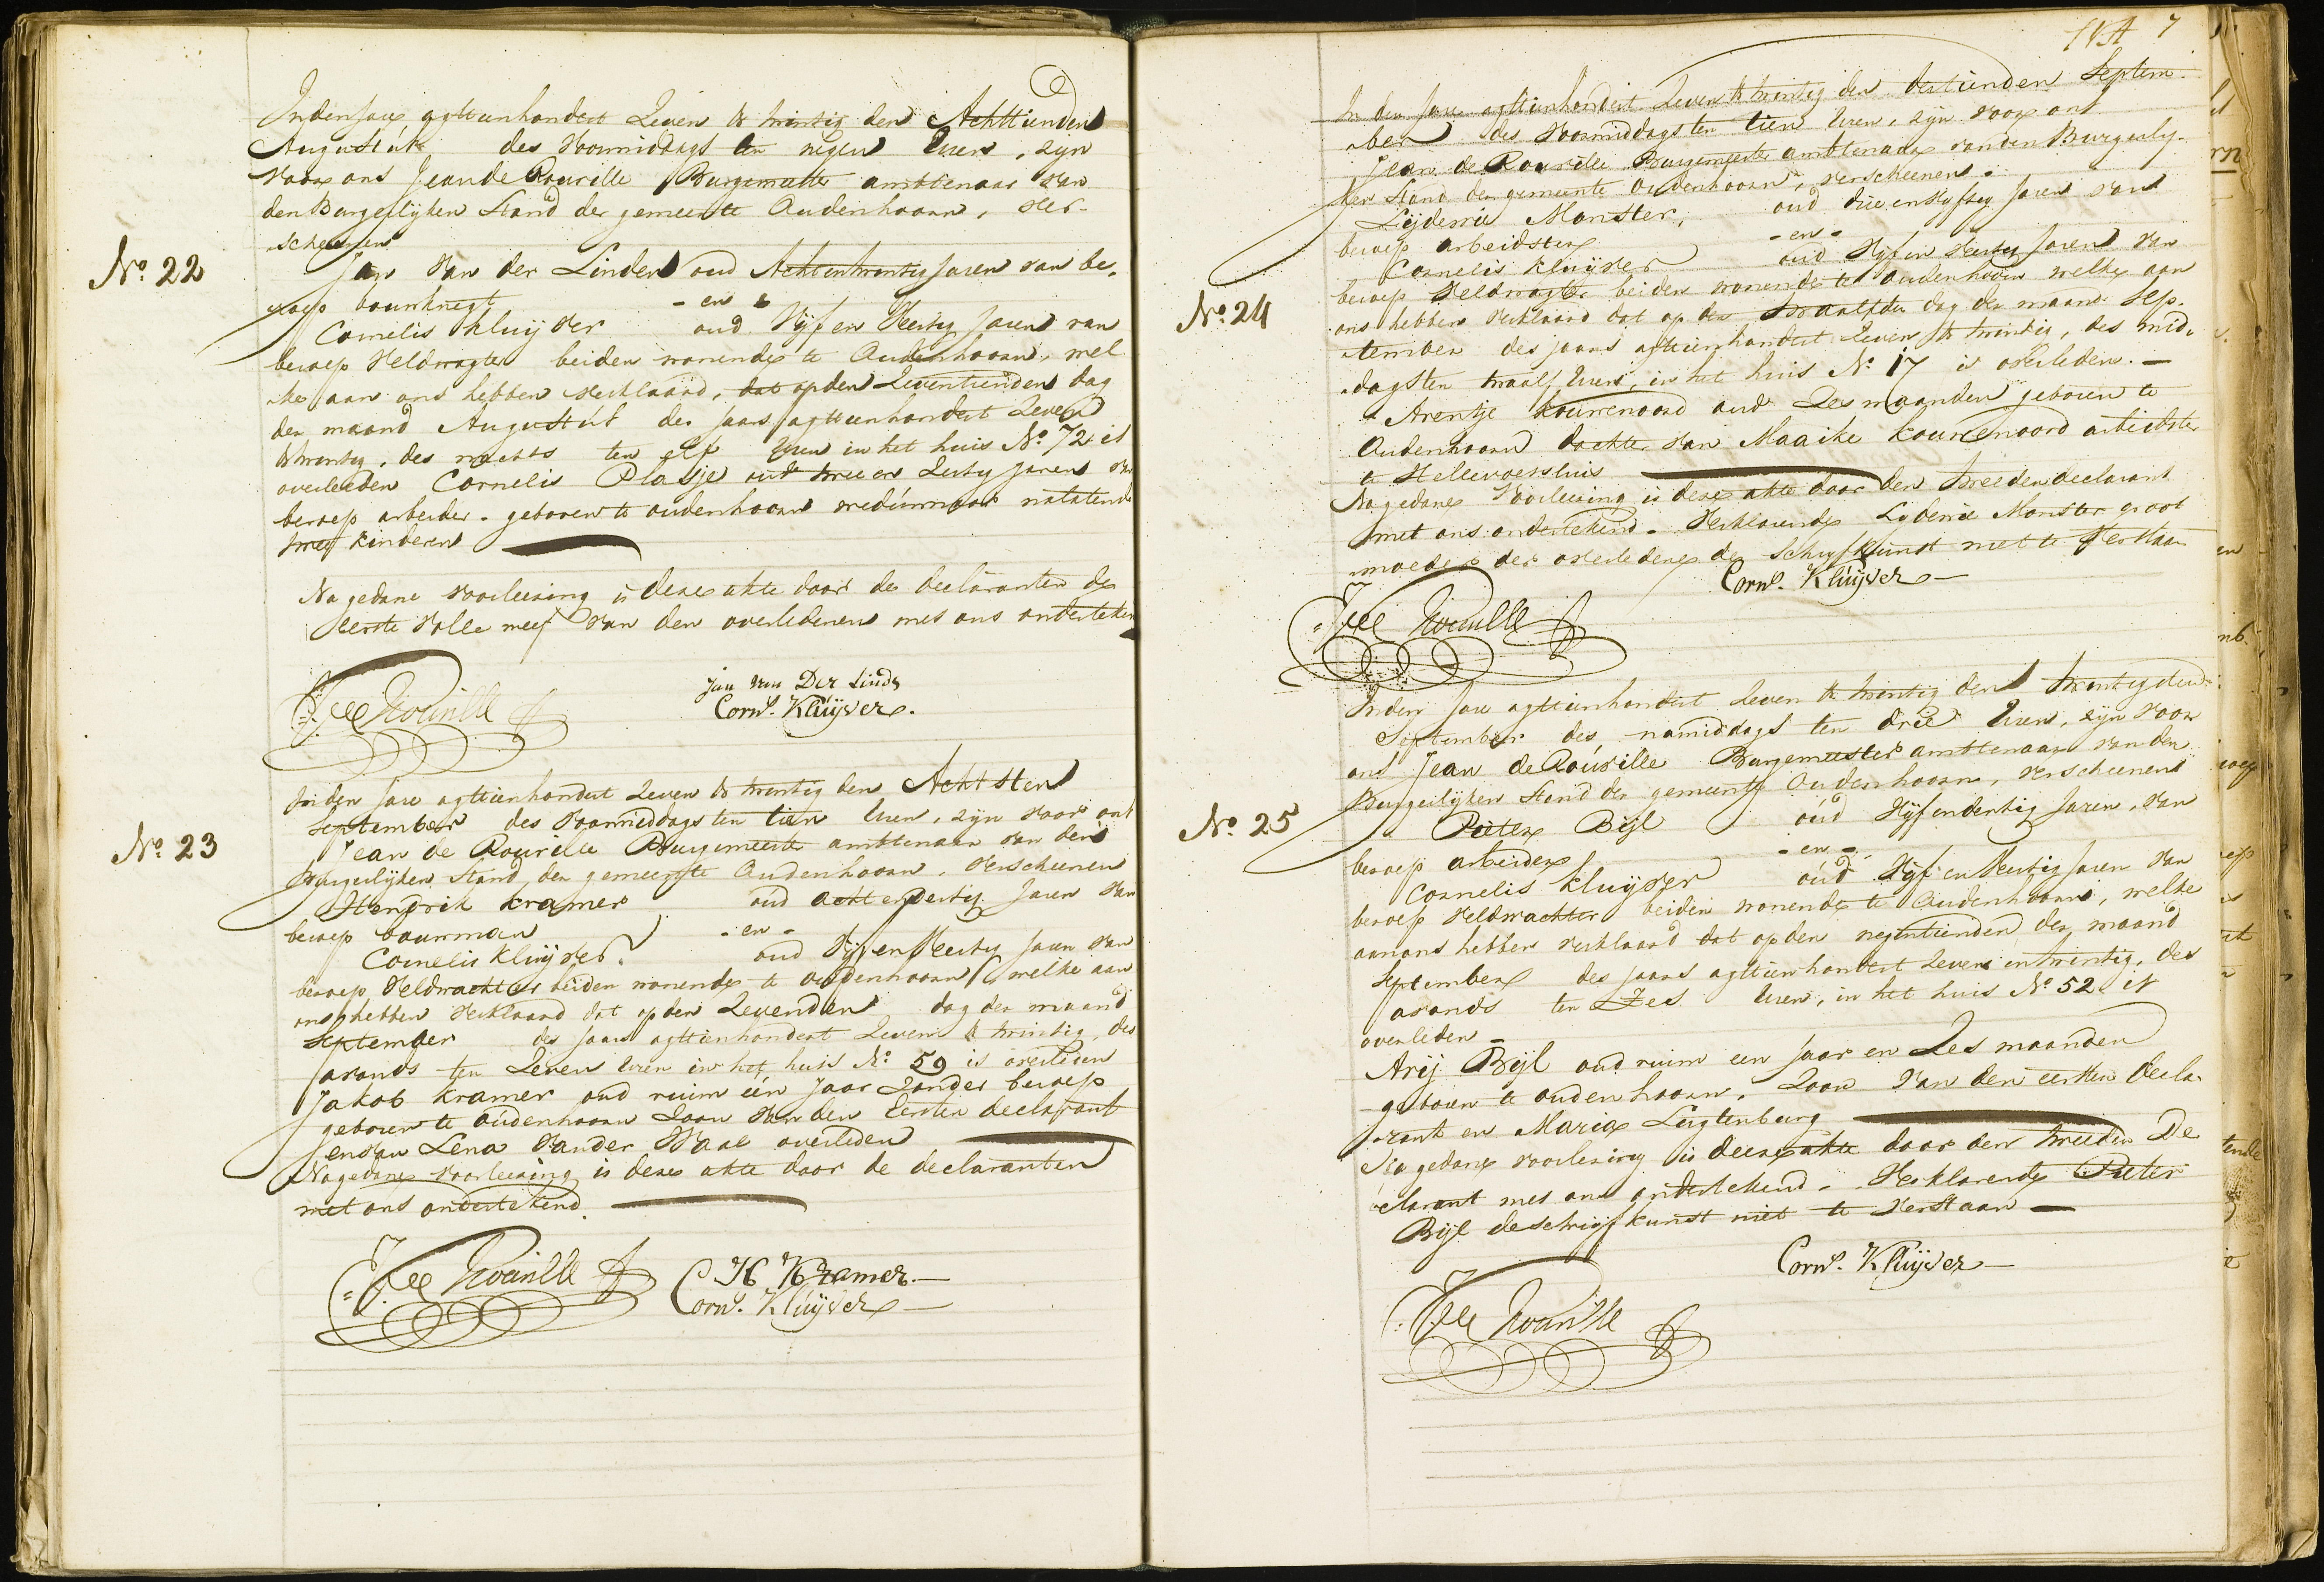 In den Jare agttienhondert Zeven & twintig den Achttienden
Augustus des Voormiddags ten negen Uuren, zyn
Voor ons Jean de Rouville Burgemeester ambtenaar Van
den Burgerlijken Stand der gemeente Oudenhoorn, Ver-
scheenen
No. 22
Jan Van der Linden oud Achtentwintig Jaren van be-
roep bouwknegt - en -
Cornelis Kluijver oud Vijf en Veertig Jaren van
beroep Veldwagter beiden wonende te Oudenhoorn, wel
ke aan ons hebben Verklaard, dat op den Zeventienden dag
der maand Augustus des Jaars agttienhondert Zeven
& twintig, des nachts ten elf Uuren in het huis No. 72 is
overleeden Cornelis Plasje oud twee en Zestig Jaren van
beroep arbeider - geboren te oudenhoorn weduwnaar nalatende
twee kinderen
Na gedane voorleezing is deze akte door de declaranten de
eerste Volle neef van den overledenen met ons onderteken
J de Rouville
Jan van Der Linde
Corns. Kluijver.
In den Jare agttienhondert Zeven & twintig den Achtsten
September des Voormiddags ten tien Uuren, zijn voor ons
Jean de Rouville Burgemeester ambtenaar van den
No. 23
Burgerlijken Stand, der gemeente Oudenhoorn, Verscheenen
Hendrik Kramer oud acht en Jaren Van
beroep bouwman - en -
Cornelis Kluijver. oud Vijf en Veertig Jaren Van
beroep Veldwachter beiden wonende te oudenhoorn welke aan
ons hebben Verklaard dat op den Zevenden dag der maand
September des Jaars agttienhondert Zeven & twintig, des
avonds ten Zeven Uuren in het huis No. 59 is overleden
Jakob Kramer oud ruim één Jaar Zonder beroep
geboren te oudenhoorn Zoon Van den Eersten declarant
en van Lena Vander Waal overleden
Na gedane Voorleezing is deze akte door de declaranten
met ons ondertekend.
J de Rouville
H Kramer.
Corns. Kluijver
7
In den Jare agttienhondert Zeven & twintig den dertienden Septem-
ber des Voormiddags ten tien Uuren, zijn voor ons
Jean de Rouville Burgemeester ambtenaar van den Burgerly-
ken Stand der gemeente Oudenhoorn, verscheenen -
Lijdewie Monster, oud drie en Vyftig Jaren van
beroep arbeidster - en -
Cornelis Kluijver oud Vijf en Veertig Jaren Van
No. 24
beroep Veldwagter beiden wonende te Oudenhoorn welke aan
ons hebben Verklaard dat op den twaalfden dag der maand Sep-
tember des Jaars agttienhondert Zeven & twintig, des mid-
dags ten twaalf Uuren, in het huis No. 17 is overleden. -
Arentje Kouwenoord oud Zes maanden geboren te
Oudenhoorn dochter van Maaike Kouwenoord arbeidster
te Hellevoetsluis
Na gedane Voorleezing is deze akte door den tweeden declarant
met ons ondertekend - Verklarende Lydewie Monster groot
moeder der overledene de schryfkunst niet te Verstaan
Corns. Kluijver
J de Rouville
In den Jare agttienhondert Zeven & twintig den twintigsten
September des namiddags ten drie Uuren, zijn voor
ons Jean de Rouville Burgemeester ambtenaar van den
Burgerlijken Stand der gemeente Oudenhoorn, verscheenen
No. 25
Pieter Bijl oud Vijf en dertig Jaren, van
beroep arbeider - en -
Cornelis Kluijver oud Vijf en Veertig Jaren Van
beroep Veldwachter beiden wonende te Oudenhoorn, welke
aan ons hebben verklaard dat op den negentienden der maand
September des Jaars agttienhondert Zeven en twintig, des
avonds ten Zes Uuren, in het huis No. 52 is
overleden -
Arij Bijl oud ruim een Jaar en Zes maanden
geboren te oudenhoorn, Zoon Van den eersten decla-
rant en Maria Lugtenburg
Na gedane voorlezing is deeze akte door den tweeden De
clarant met ons ondertekend - Verklarende Pieter
Bijl de schrijfkunst niet te Verstaan
Corns. Kluijver
J de Rouville